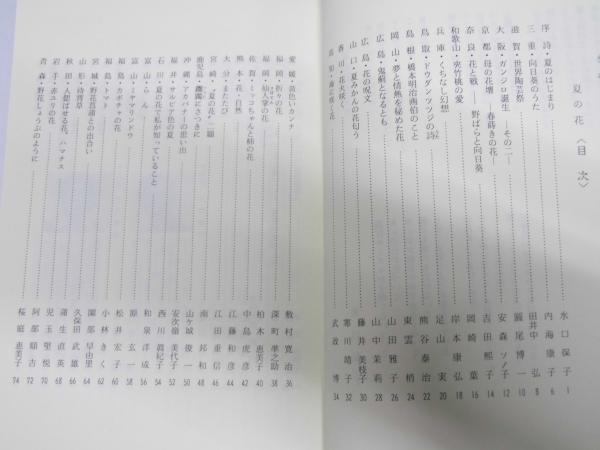 夏の花〈目次〉
序詩・夏のはじまり 水口保子 1
三重・向日葵のうた 内海康子 6
滋賀・世界陶芸祭 田井中弘 8
大阪・ガンジロ誕生―その二― 圓尾博一 10
京都・母の花壇 春蒔きの花― 安森ソノ子 12
奈良・花と戦―野ばらと向日葵 吉田熈子 14
和歌山・夾竹桃の愛 岡崎葉 16
兵庫・くちなし幻想 岸本康弘 18
鳥取・ドウダンツツジの詩 足山実 20
島根・橋本明治画伯のこと 熊谷泰治 22
岡山・夢と情熱を秘めた花 東雲梢 24
広島・鬼薊となるとも 山田雅子 26
広島・花の呪文 山中茉莉 28
山口・夏みかんの花匂う 藤井美枝子 30
香川・花火咲く 寒川靖子 32
高知・海に咲く花 武政博 34
愛媛・黄色いカンナ 敷村寛治 36
福岡・祈りの花 深町準之助 38
福岡・仙人掌の花 柏木恵美子 40
佐賀・コッコちゃんと柿の花 中島虎彦 42
熊本・花・自然 江藤和彦 44
大分・またたび 江田重信 46
宮崎・「夏の花」二題 南邦和 48
鹿児島・鑑真にさつきに
沖縄・アカバナーの思い出 山ケ城俊一 50
福井・サルビア色の夏 安次嶺美代子 52
石川・夏の花で私が知っていること 西川眞紀子 54
富山・らん 和泉洋成 56
富山・ミヤマリンドウ 原玄一 58
福島・カボチャの花 松井宏子 60
福島・トマト 小林きく 62
宮城・野花菖蒲との出合い 園部早由里 64
山形・待宵草 久保田武雄 66
秋田・人偲ばせる花、ハマナス 蒲生直英 68
岩手・赤ユリの花 児玉堅悦 70
青森・野花しょうぶのように 阿部顯吉 72
桜庭恵美子 74